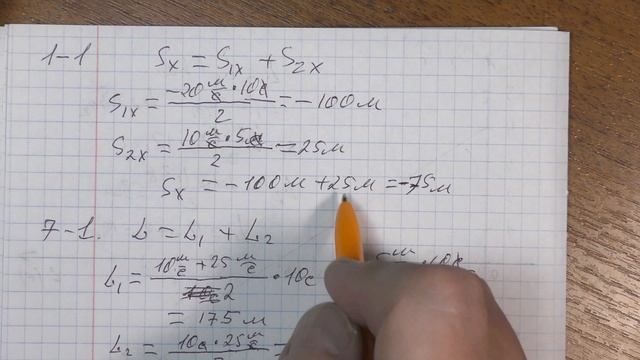 1-1 Sx = S1x + S2x
S1x = (-20 м/с · 10с)/2 = -100м
S2x = (10 м/с · 5с)/2 = 25м
Sx = -100м + 25м = -75м
7-1. L = L1 + L2
L1 = (10 м/с + 25 м/с)/2 · 10с
= 175 м
L2 = 10с · 25 м/с =